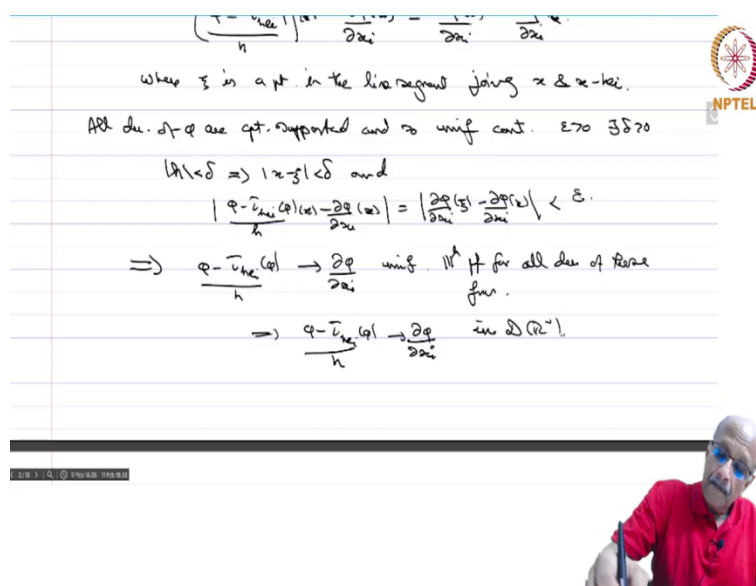 (φ - τ_{hei}φ / h)(x) - ∂φ/∂xi (x) = ∂φ/∂xi (ξ) - ∂φ/∂xi
where ξ is a pt. in the line segment joining x & x-hei.
NPTEL
All der. of φ are cpt. supported and so unif cont. ε>0 ∃δ>0
|h|<δ ⇒ |x-ξ|<δ and
| φ-τ_{hei}(φ)/h (x) - ∂φ/∂xi (x) | = | ∂φ/∂xi (ξ) - ∂φ/∂xi (x) | < ε.
⇒ φ-τ_{hei}(φ)/h → ∂φ/∂xi unif. |||^h pf for all der of these
fns.
⇒ φ-τ_{hei}(φ)/h → ∂φ/∂xi in D(ℝⁿ).